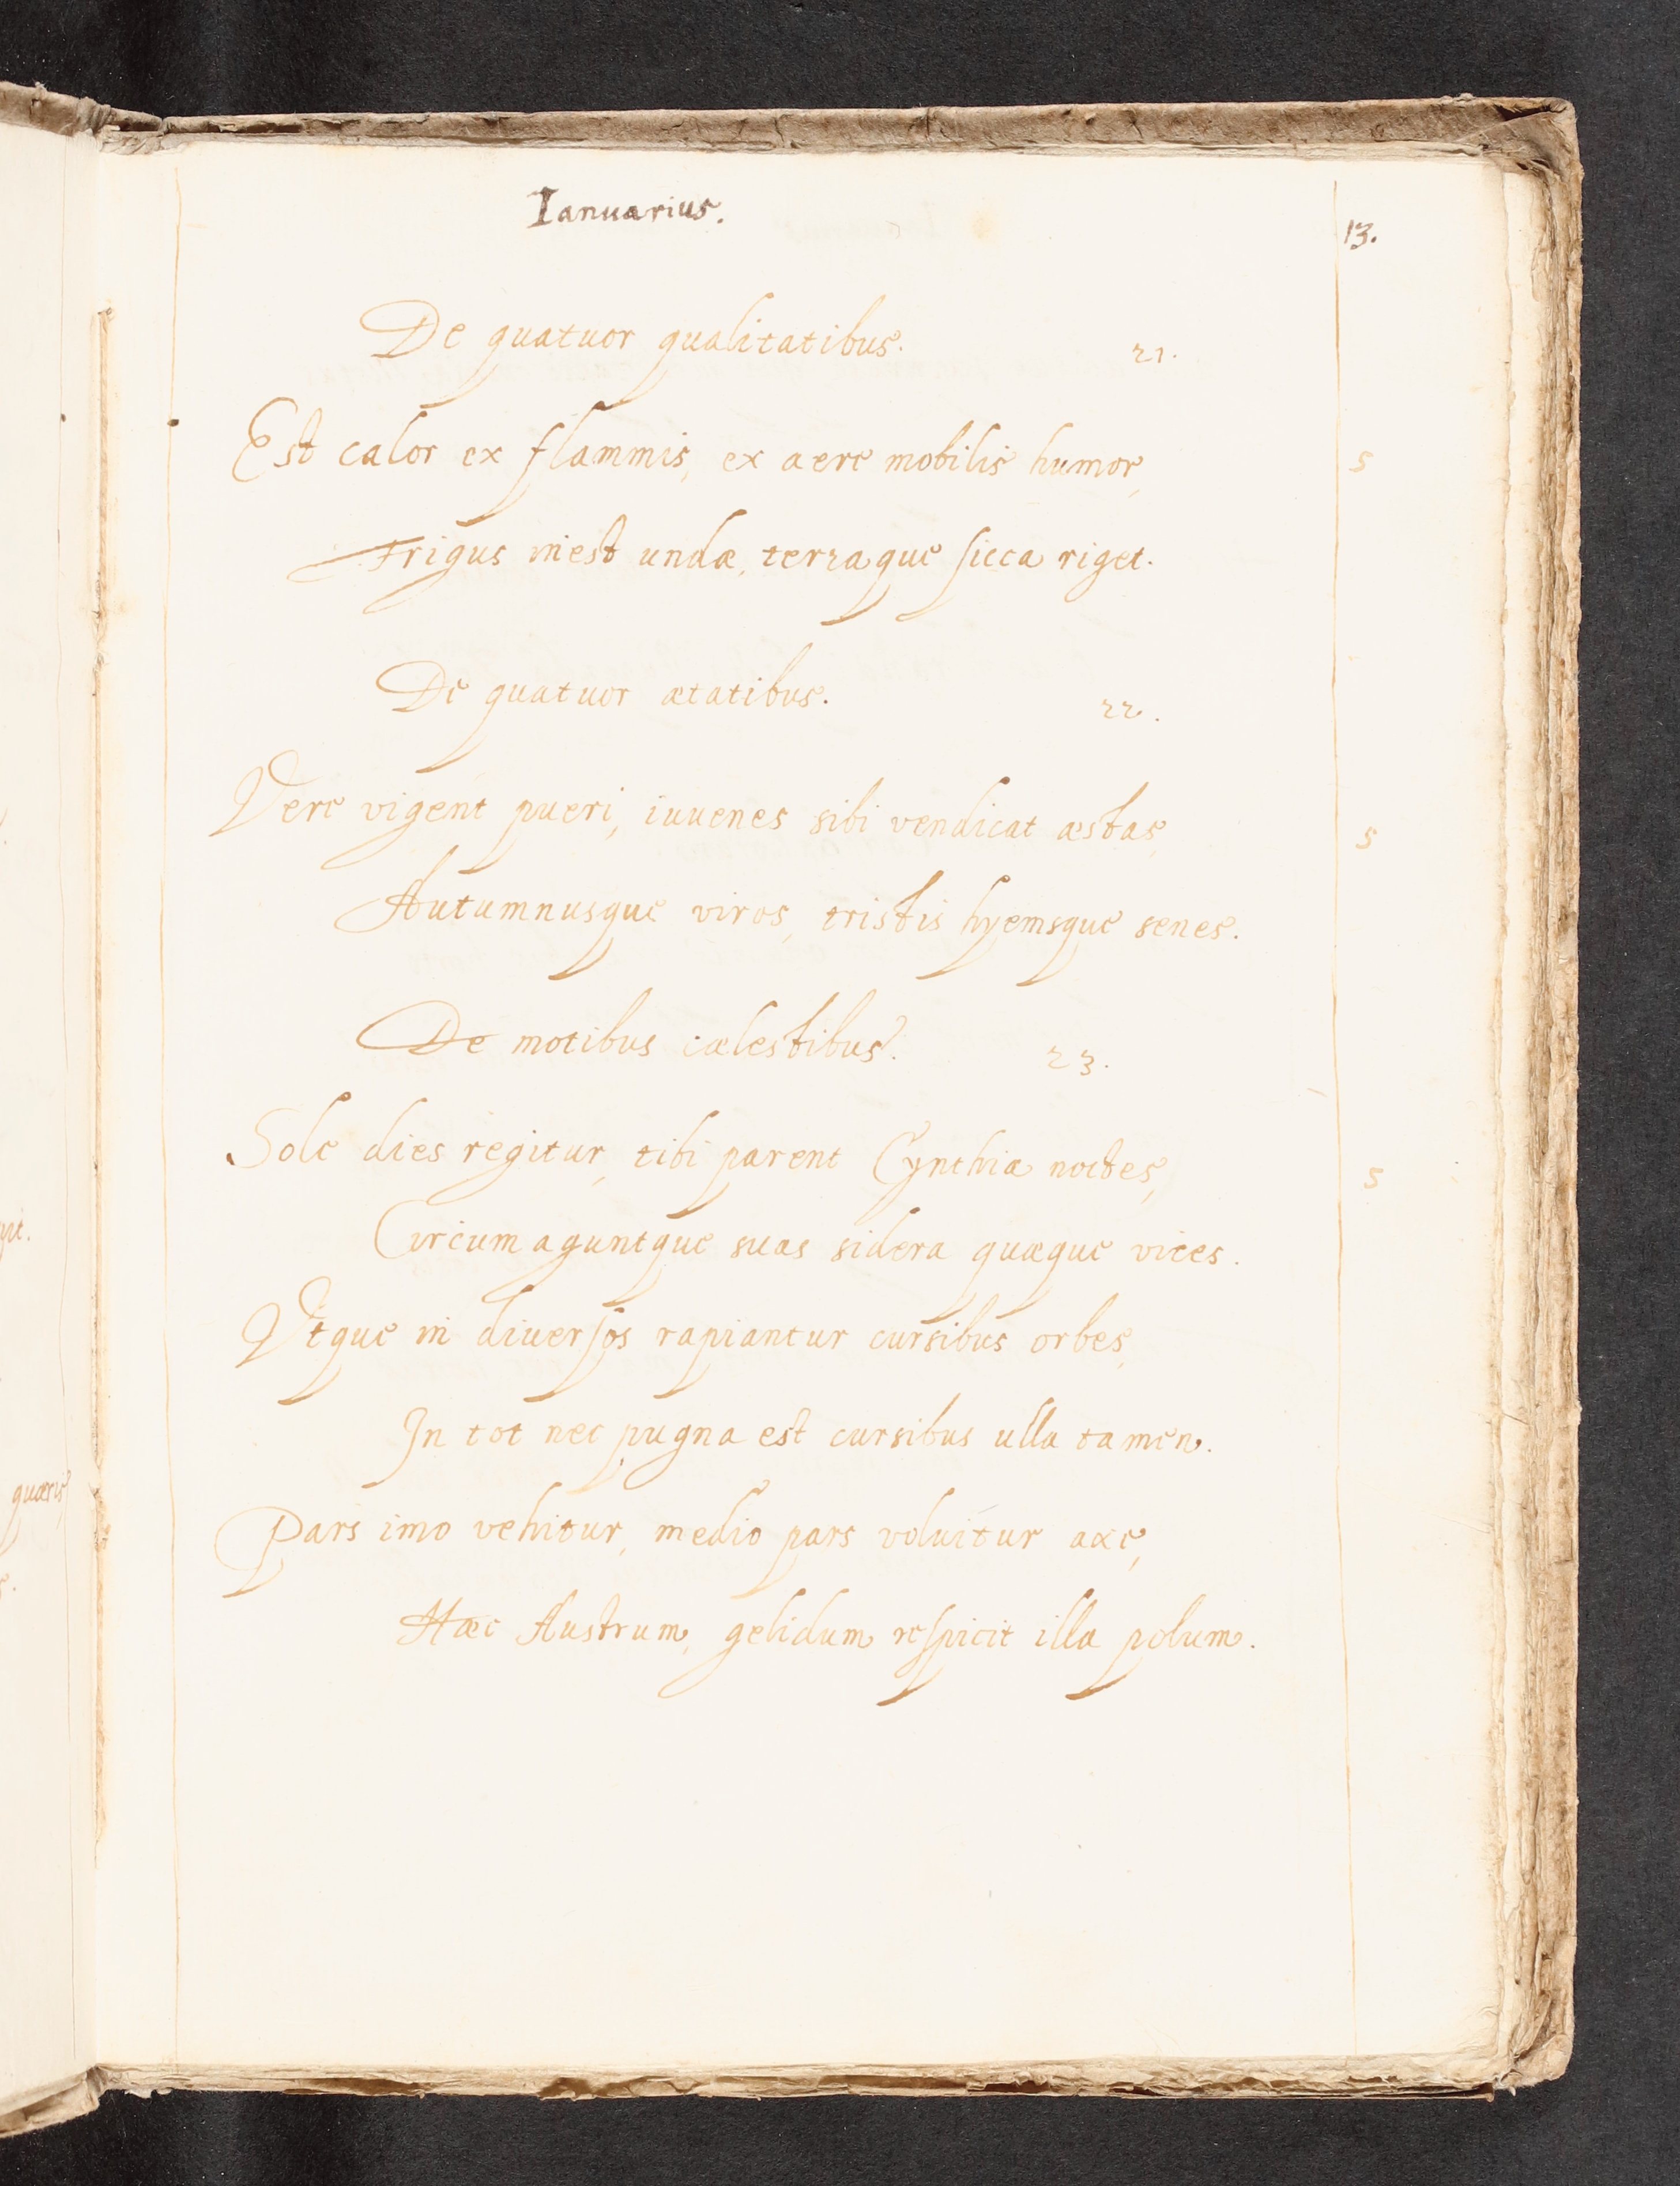 Ianuarius.
13.
De quatuor qualitatibus. 21.
Est calor ex flammis, ex aere mobilis humor, 5
Frigus inest undæ, terraque sicca riget.
De quatuor ætatibus. 22.
Vere vigent pueri, iuuenes sibi vendicat æstas, 5
Autumnusque viros, tristis hyemsque senes.
De motibus cælestibus. 23.
Sole dies regitur, tibi parent Cynthia noctes, 5
Circumaguntque suas sidera quæque vices.
Vtque in diuersos rapiantur cursibus orbes,
In tot nec pugna est cursibus ulla tamen.
Pars imo vehitur, medio pars voluitur axe,
Hæc Austrum, gelidum respicit illa polum.
quæris